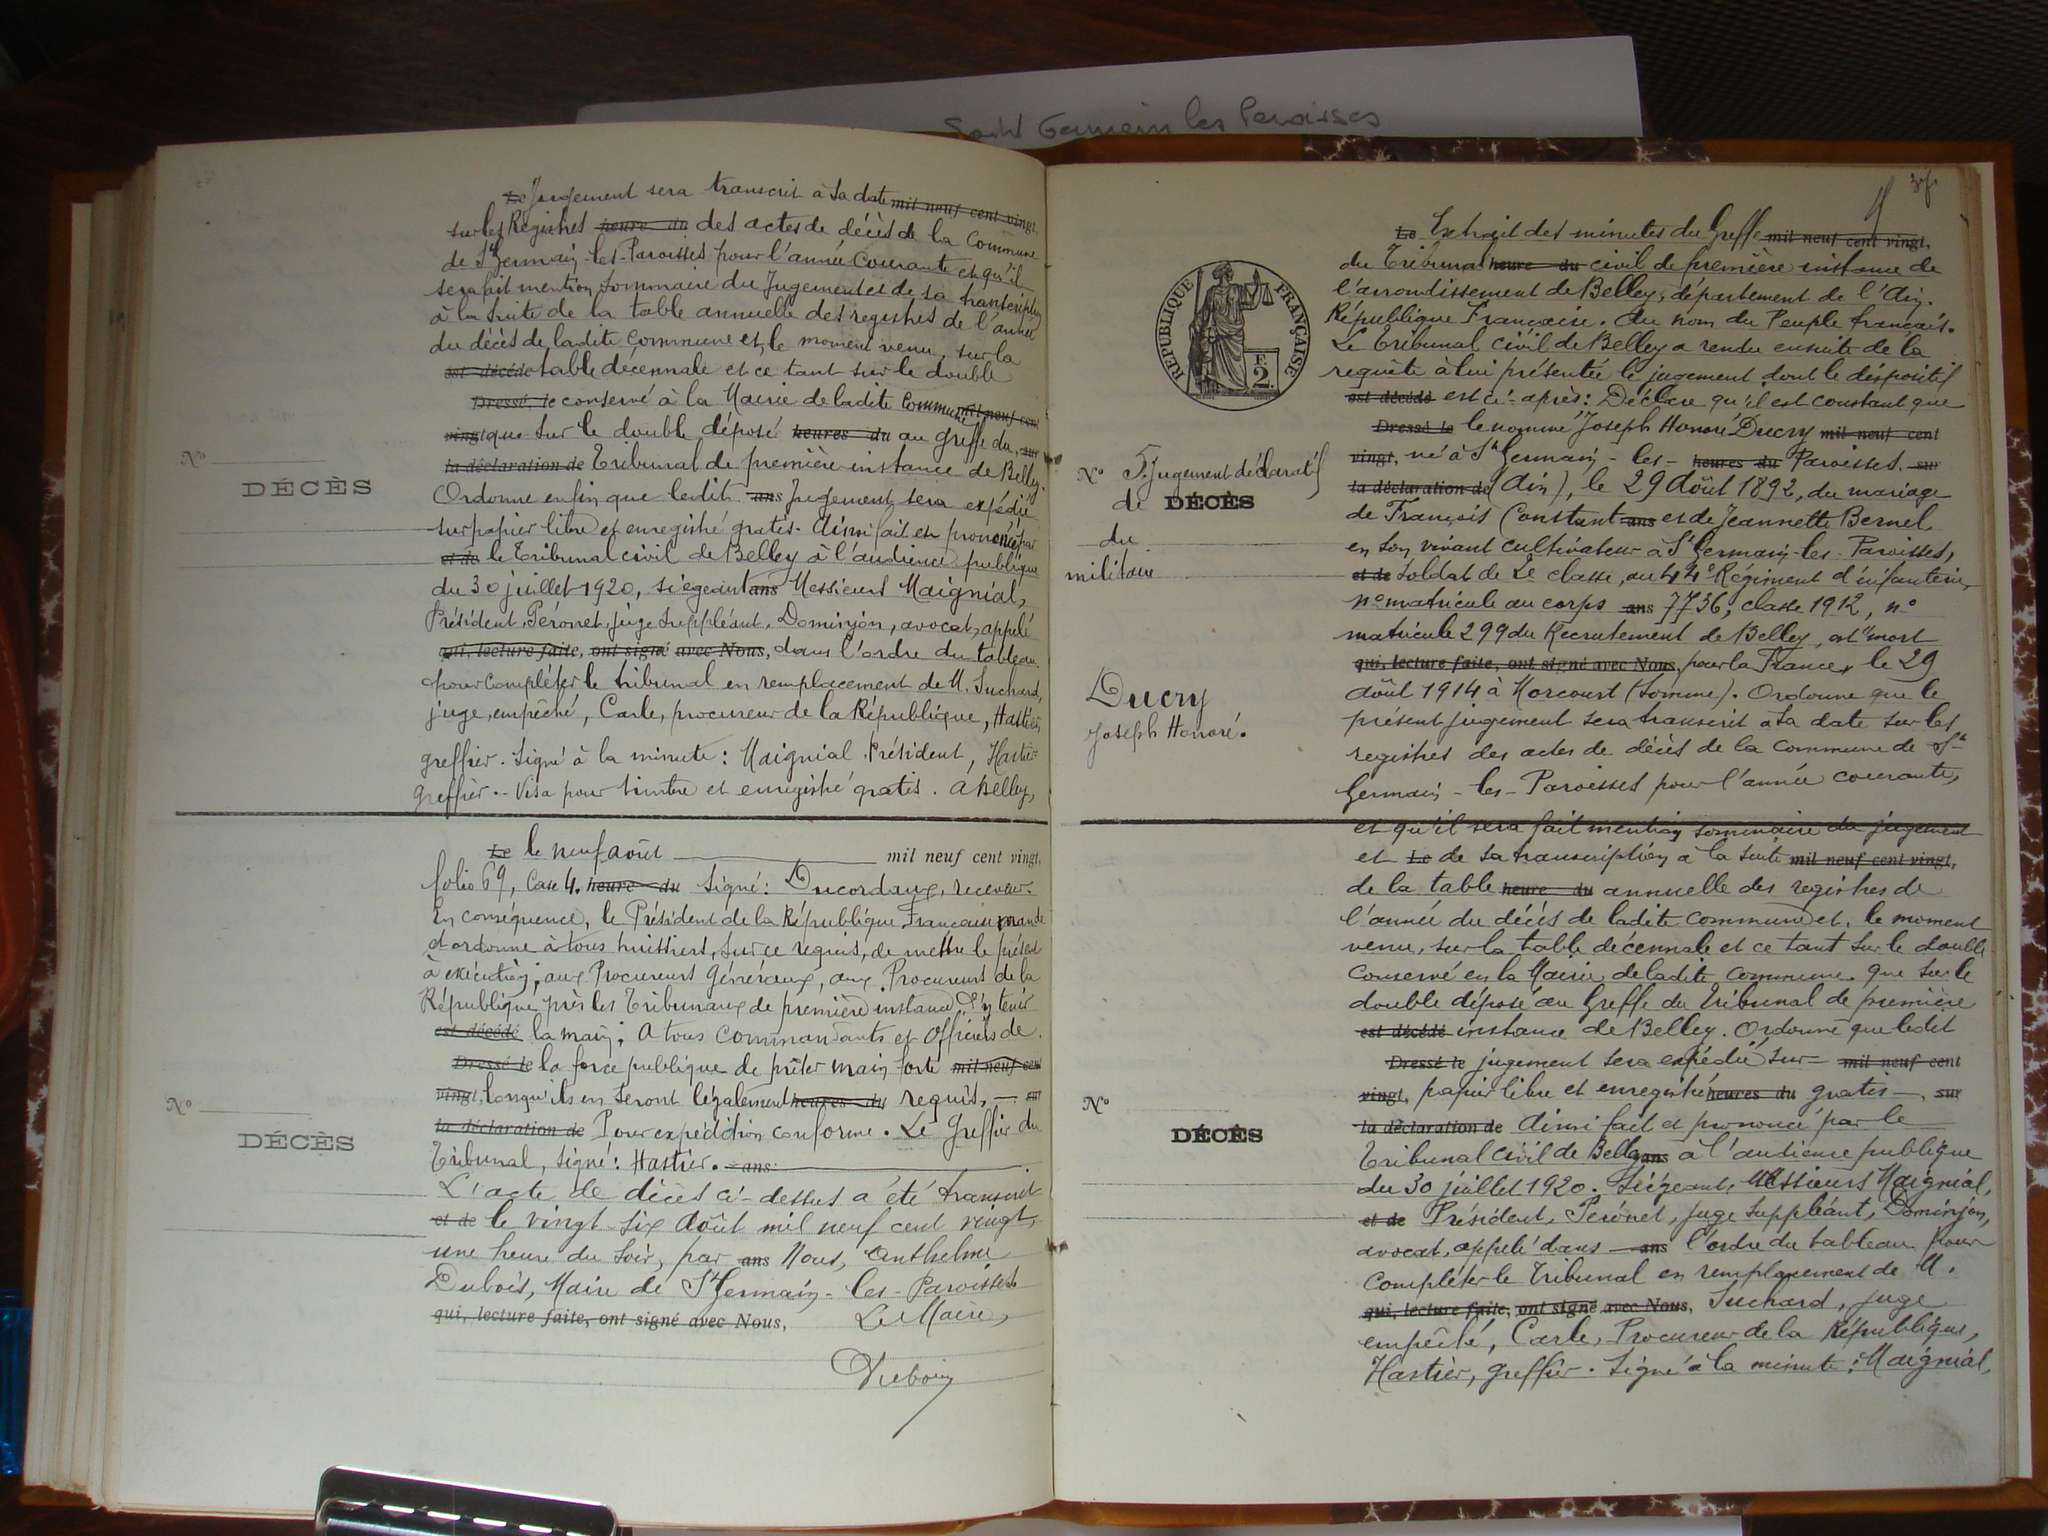 Saint Germain les Paroisses
Le Jugement sera transcrit à sa date mil neuf cent vingt,
sur les Registres heure du des actes de décès de la Commune
de St Germain-les-Paroisses pour l'année courante et qu'il
sera fait mention sommaire du Jugement et de sa transcription
à la suite de la table annuelle des registres de l'année
du décès de ladite commune et, le moment venu, sur la
est décédé table décennale et ce tant sur le double
Dressé, le conservé à la Mairie de ladite Commune mil neuf cent
vingt que sur le double déposé heures du au greffe du, sur
la déclaration de Tribunal de première instance de Belley.
Ordonne enfin que ledit ans Jugement sera expédié
sur papier libre et enregistré gratis. Ainsi fait et prononcé par
et de le Tribunal civil de Belley à l'audience publique
du 30 juillet 1920, siégeant ans Messieurs Maignial,
Président, Péronet, juge suppléant, Dominjon, avocat, appelé
qui, lecture faite, ont signé avec Nous, dans l'ordre du tableau
pour compléter le tribunal en remplacement de M. Suchard,
juge, empêché, Carle, procureur de la République, Hastier,
greffier. Signé à la minute: Maignial Président, Hastier
Greffier.- Visa pour timbre et enregistré gratis. à Belley,
No
DÉCÈS
Le le neuf août mil neuf cent vingt,
folio 69, Case 4. heure du Signé: Ducordaux, receveur.
En conséquence, le Président de la République Française mande
et ordonne à tous huissiers, sur ce requis, de mettre le présent
à exécution; aux Procureurs Généraux, aux Procureurs de la
République près les Tribunaux de première instance d'y tenir
est décédé la main; A tous Commandants et Officiers de
Dressé le la force publique de prêter main forte mil neuf cent
vingt, lorsqu'ils en seront légalement heures du requis, — sur
la déclaration de Pour expédition conforme. Le Greffier du
Tribunal, signé: Hastier. ans
L'acte de décès ci-dessus a été transcrit
et de le vingt-six Août mil neuf cent vingt,
une heure du soir, par ans Nous, Anthelme
Dubois, Maire de St Germain-les-Paroisses
qui, lecture faite, ont signé avec Nous, Le Maire,
Dubois
No
DÉCÈS
37
Le Extrait des minutes du Greffe mil neuf cent vingt,
du Tribunal heure du civil de première instance de
l'arrondissement de Belley, département de l'Ain.
République Française. Au nom du Peuple français.
Le Tribunal civil de Belley a rendu ensuite de la
requête à lui présentée le jugement dont le dispositif
est décédé est ci-après: Déclare qu'il est constant que
Dressé le le nommé Joseph Honoré Ducry mil neuf cent
vingt, né à St Germain-les- heures du Paroisses, sur
la déclaration de (Ain), le 29 Août 1892, du mariage
de François Constant ans et de Jeannette Bernel
en son vivant cultivateur à St Germain-les-Paroisses,
et de Soldat de 2e classe, au 44e Régiment d'infanterie,
no matricule au corps ans 7736, classe 1912, no
matricule 299 du Recrutement de Belley, est mort
qui, lecture faite, ont signé avec Nous, pour la France, le 29
Août 1914 à Morcourt (Somme). Ordonne que le
présent jugement sera transcrit à sa date sur les
registres des actes de décès de la commune de St
Germain-les-Paroisses pour l'année courante,
RÉPUBLIQUE FRANÇAISE
E.
2.
No 5. Jugement déclaratif
de DÉCÈS
du
militaire
Ducry
Joseph Honoré.
et qu'il sera fait mention sommaire du jugement
et Le de sa transcription à la suite mil neuf cent vingt,
de la table heure du annuelle des registres de
l'année du décès de ladite commune et, le moment
venu, sur la table décennale et ce tant sur le double
conservé en la Mairie de ladite commune que sur le
double déposé au Greffe du Tribunal de première
est décédé instance de Belley. Ordonne que ledit
Dressé le jugement sera expédié sur= mil neuf cent
vingt, papier libre et enregistré heures du gratis —, sur
la déclaration de Ainsi fait et prononcé par le
Tribunal civil de Belley ans à l'audience publique
du 30 juillet 1920. Siégeant, Messieurs Maignial,
et de Président, Péronet, juge suppléant, Dominjon,
avocat, appelé dans ans l'ordre du tableau pour
compléter le Tribunal en remplacement de M.
qui, lecture faite, ont signé avec Nous, Suchard, juge
empêché, Carle, Procureur de la République,
Hastier, greffier. Signé à la minute: Maignial,
No
DÉCÈS